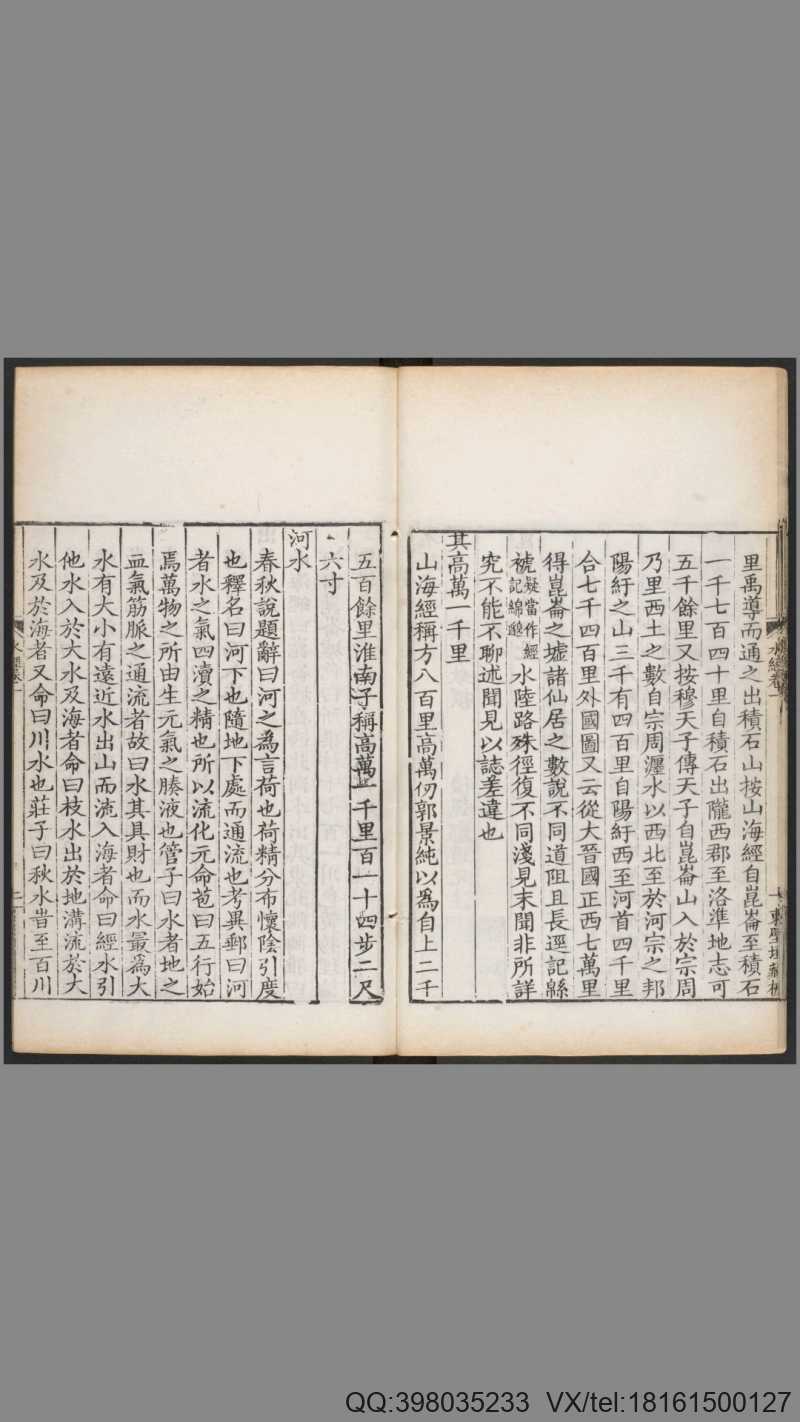 里禹導而通之出積石山按山海經自崑崙至積石
一千七百四十里自積石出隴西郡至洛準地志可
五千餘里又按穆天子傳天子自崑崙山入於宗周
乃里西土之數自宗周瀍水以西北至於河宗之邦
陽紆之山三千有四百里自陽紆西至河首四千里
合七千四百里外國圖又云從大晉國正西七萬里
得崑崙之墟諸仙居之數說不同道阻且長逕記緜
褫疑當作經記綿邈水陸路殊徑復不同淺見末聞非所詳
究不能不聊述聞見以誌差違也
其高萬一千里
山海經稱方八百里高萬仞郭景純以爲自上二千
水經卷一
五百餘里淮南子稱高萬一千里百一十四步二尺
六寸
河水
春秋說題辭曰河之為言荷也荷精分布懷陰引度
也釋名曰河下也隨地下處而通流也考異郵曰河
者水之氣四瀆之精也所以流化元命苞曰五行始
焉萬物之所由生元氣之腠液也管子曰水者地之
血氣筋脈之通流者故曰水其具財也而水最為大
水有大小有遠近水出山而流入海者命曰經水引
他水入於大水及海者命曰枝水出於地溝流於大
水及於海者又命曰川水也莊子曰秋水昔至百川
QQ:398035233 VX/tel:18161500127